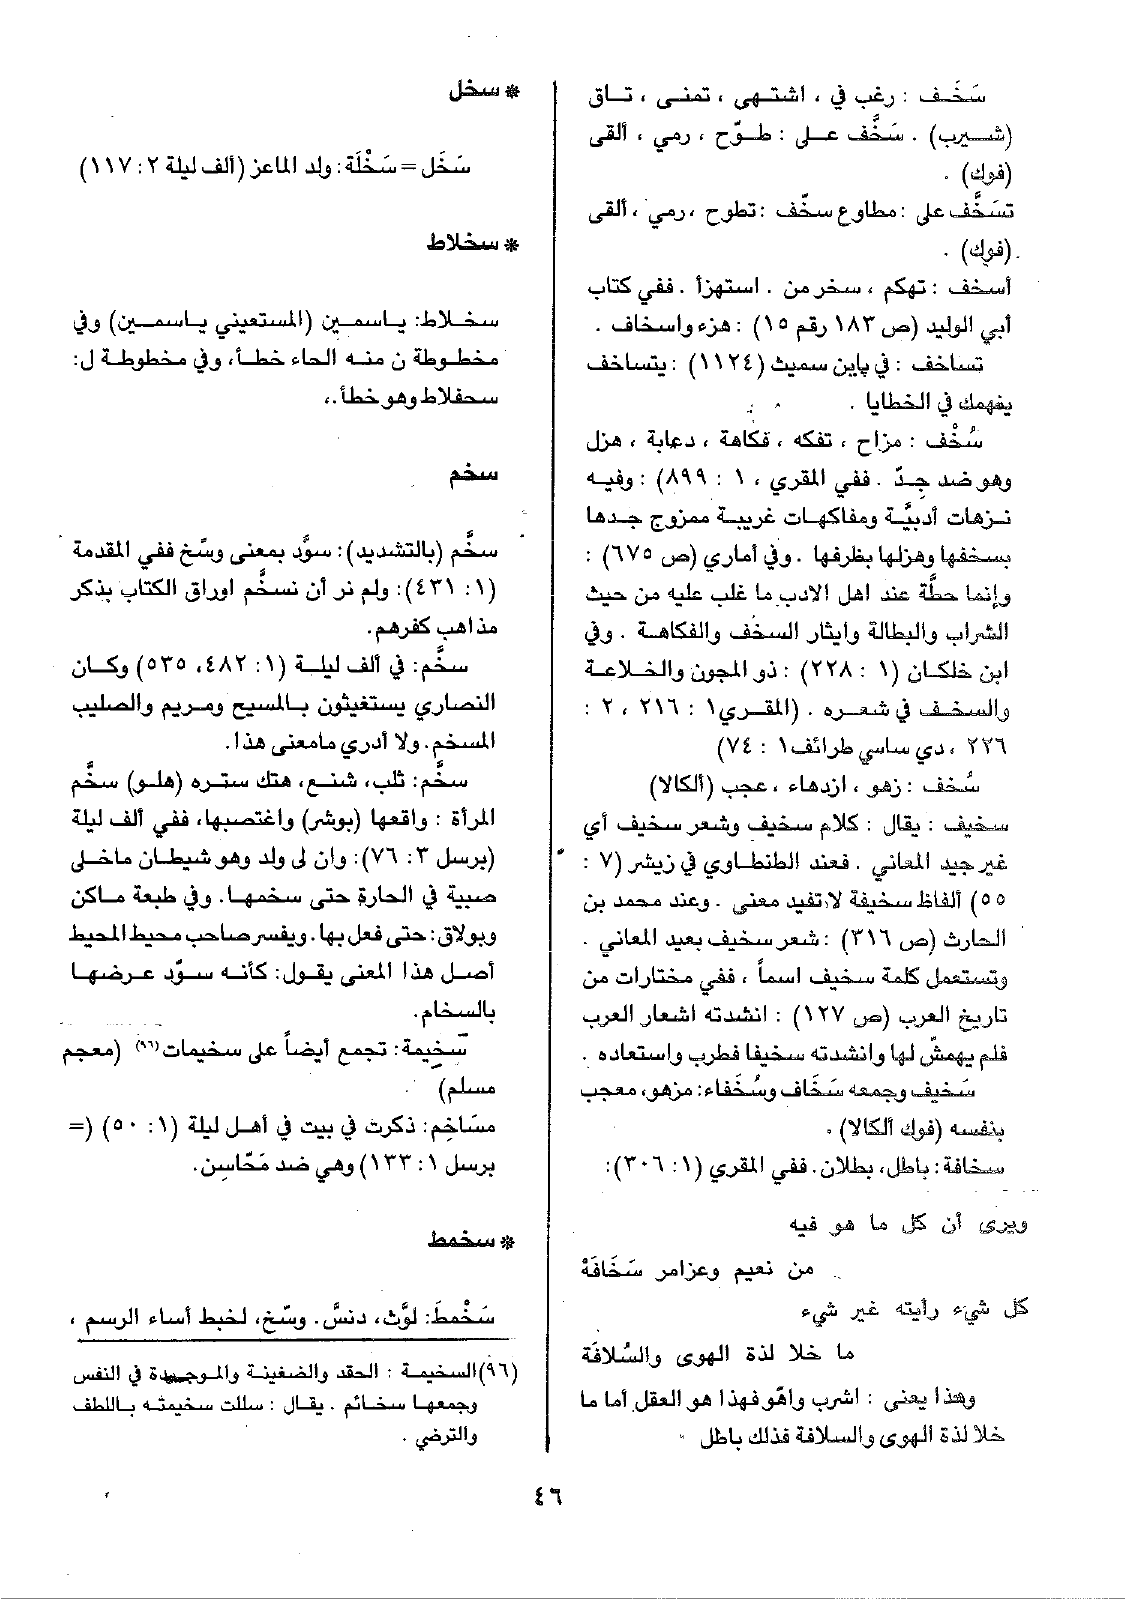 سَخَف : رغب في ، اشتهى ، تمنى ، تاق
(شيرب) . سَخَّف على : طوّح ، رمي ، ألقى
(فوك) .
تسَخَّف على : مطاوع سخّف : تطوح ، رمي ، ألقى
(فوك) .
أسخف : تهكم ، سخر من . استهزأ . ففي كتاب
أبي الوليد (ص ١٨٣ رقم ١٥) : هزء واسخاف .
تساخف : في پاين سميث (١١٢٤) : يتساخف
يفهمك في الخطايا .
سُخْف : مزاح ، تفكه ، فكاهة ، دعابة ، هزل
وهو ضد جدّ . ففي المقري ، ١ : ٨٩٩) : وفيه
نزهات أدبيَّة ومفاكهات غريبة ممزوج جدها
بسخفها وهزلها بظرفها . وفي أماري (ص ٦٧٥) :
وإنما حطَّة عند اهل الادب ما غلب عليه من حيث
الشراب والبطالة وايثار السخف والفكاهة . وفي
ابن خلكان (١ : ٢٢٨) : ذو المجون والخلاعة
والسخف في شعره . (المقري ١ : ٢١٦ ، ٢ :
٢٢٦ ، دي ساسي طرائف ١ : ٧٤)
سُخف : زهو ، ازدهاء ، عجب (ألكالا)
سخيف : يقال : كلام سخيف وشعر سخيف أي
غير جيد المعاني . فعند الطنطاوي في زيشر (٧ :
٥٥) ألفاظ سخيفة لا تفيد معنى . وعند محمد بن
الحارث (ص ٣١٦) : شعر سخيف بعيد المعاني .
وتستعمل كلمة سخيف اسماً ، ففي مختارات من
تاريخ العرب (ص ١٢٧) : انشدته اشعار العرب
فلم يهمشّ لها وانشدته سخيفا فطرب واستعاده .
سَخيف وجمعه سَخَاف وسُخَفاء: مزهو، معجب
بنفسه (فوك ألكالا) .
سخافة: باطل، بطلان. ففي المقري (١: ٣٠٦):
ويرى أن كل ما هو فيه
من نعيم وعزامر سَخَافَهْ
كل شيء رأيته غير شيء
ما خلا لذة الهوى والسُلافَة
وهذا يعني : اشرب واهْو فهذا هو العقل أما ما
خلا لذة الهوى والسلافة فذلك باطل
* سخل
سَخَل = سَخْلَة: ولد الماعز (ألف ليلة ٢: ١١٧)
* سخلاط
سخلاط: ياسمين (المستعيني ياسمين) وفي
مخطوطة ن منه الحاء خطأ، وفي مخطوطة ل:
سحفلاط وهو خطأ.
سخم
سخَّم (بالتشديد): سوَّد بمعنى وسَّخ ففي المقدمة
(١: ٤٣١): ولم نر أن نسخَّم اوراق الكتاب بذكر
مذاهب كفرهم.
سخَّم: في ألف ليلة (١: ٤٨٢، ٥٣٥) وكان
النصاري يستغيثون بالمسيح ومريم والصليب
المسخم. ولا أدري مامعنى هذا.
سخَّم: ثلب، شنع، هتك ستره (هلو) سخَّم
المرأة : واقعها (بوشر) واغتصبها، ففي ألف ليلة
(برسل ٣: ٧٦): وان لى ولد وهو شيطان ماخلى
صبية في الحارة حتى سخمها. وفي طبعة ماكن
وبولاق: حتى فعل بها. ويفسر صاحب محيط المحيط
أصل هذا المعنى يقول: كأنه سوّد عرضها
بالسخام.
سَخِيمة: تجمع أيضاً على سخيمات(٩٦) (معجم
مسلم)
مسَاخِم: ذكرت في بيت في أهل ليلة (١: ٥٠) (=
برسل ١: ١٣٣) وهي ضد مَحَاسِن.
* سخمط
سَخْمطَ: لوَّث، دنسَّ. وسّخ، لخبط أساء الرسم ،
(٩٦) السخيمة : الحقد والضغينة والموجدة في النفس
وجمعها سخائم . يقال : سللت سخيمته باللطف
والترضي .
٤٦